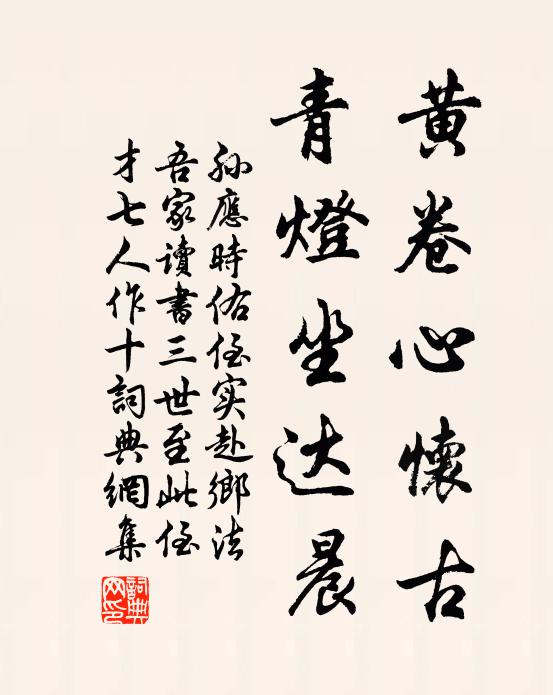 黄卷心懷古
青燈坐达晨
孙應時佑侄实赴鄉法
吾家讀書三世至此侄
才七人作十詞典網集
詞典网印